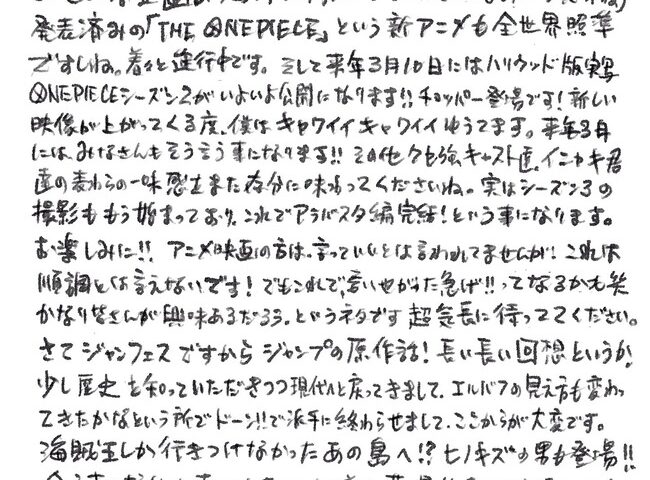 発表済みの「THE ONE PIECE」という新アニメも全世界照準
ですしね。着々と進行中です。そして来年3月10日にはハリウッド版実写
ONE PIECEシーズン2がいよいよ公開になります!! チョッパー登場です! 新しい
映像が上がってくる度、僕はキャワイイキャワイイゆうてます。来年3月
には、みなさんもそう言う事になります!! その他クセ強キャスト達、イニャキ君
達の麦わらの一味感もまた存分に味わってくださいね。実はシーズン3の
撮影ももう始まっており、これでアラバスタ編完結! という事になります。
お楽しみに!! アニメ映画の方は、言っていいとは言われてませんが! これは
順調とは言えないです! でもこれで、言いやがった急げ!! ってなるかも笑
かなり皆さんが興味あるだろう、というネタです 超気長に待っててください。
さてジャンフェスですからジャンプの原作話! 長い長い回想というか、
少し歴史を知っていただきつつ現代へと戻ってきまして、エルバフの見え方も変わっ
てきたかなという所でドーン!!で派手に終わらせまして、ここからが大変です。
海賊王しか行きつけなかったあの島へ!? ヒノキズの男も登場!!